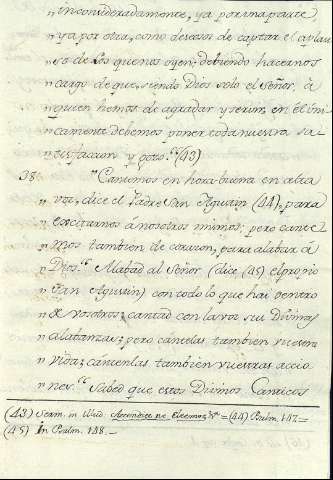 "inconsideradamente, ya por una parte,
"ya por otra, como deseosos de captar el aplau
"so de los quienes oyen: debiendo hacernos
"cargo de que, siendo Dios solo el Señor, á
"quien hemos de agradar y servir, en él úni
"camente debemos poner toda nuestra sa
"tisfaccion y gozo." (43)
38. "Cantemos en hora buena en alta
"voz, dice el Padre San Agustin (44), para
"excitarnos á nosotros mismos: pero cante
"mos tambien de corazon, para alabar á
"Dios." Alabad al Señor (dice (45) el propio
"San Agustin) con todo lo que hai dentro
"de vosotros; cantad con la voz sus Divinas
"alabanzas; pero cantelas tambien vuestra
"vida; cantenlas tambien vuestras accio
"nes." Sabed que estos Divinos Canticos
(43) Serm. in (44) Psalm. 147.=
(45) In Psalm. 148.=